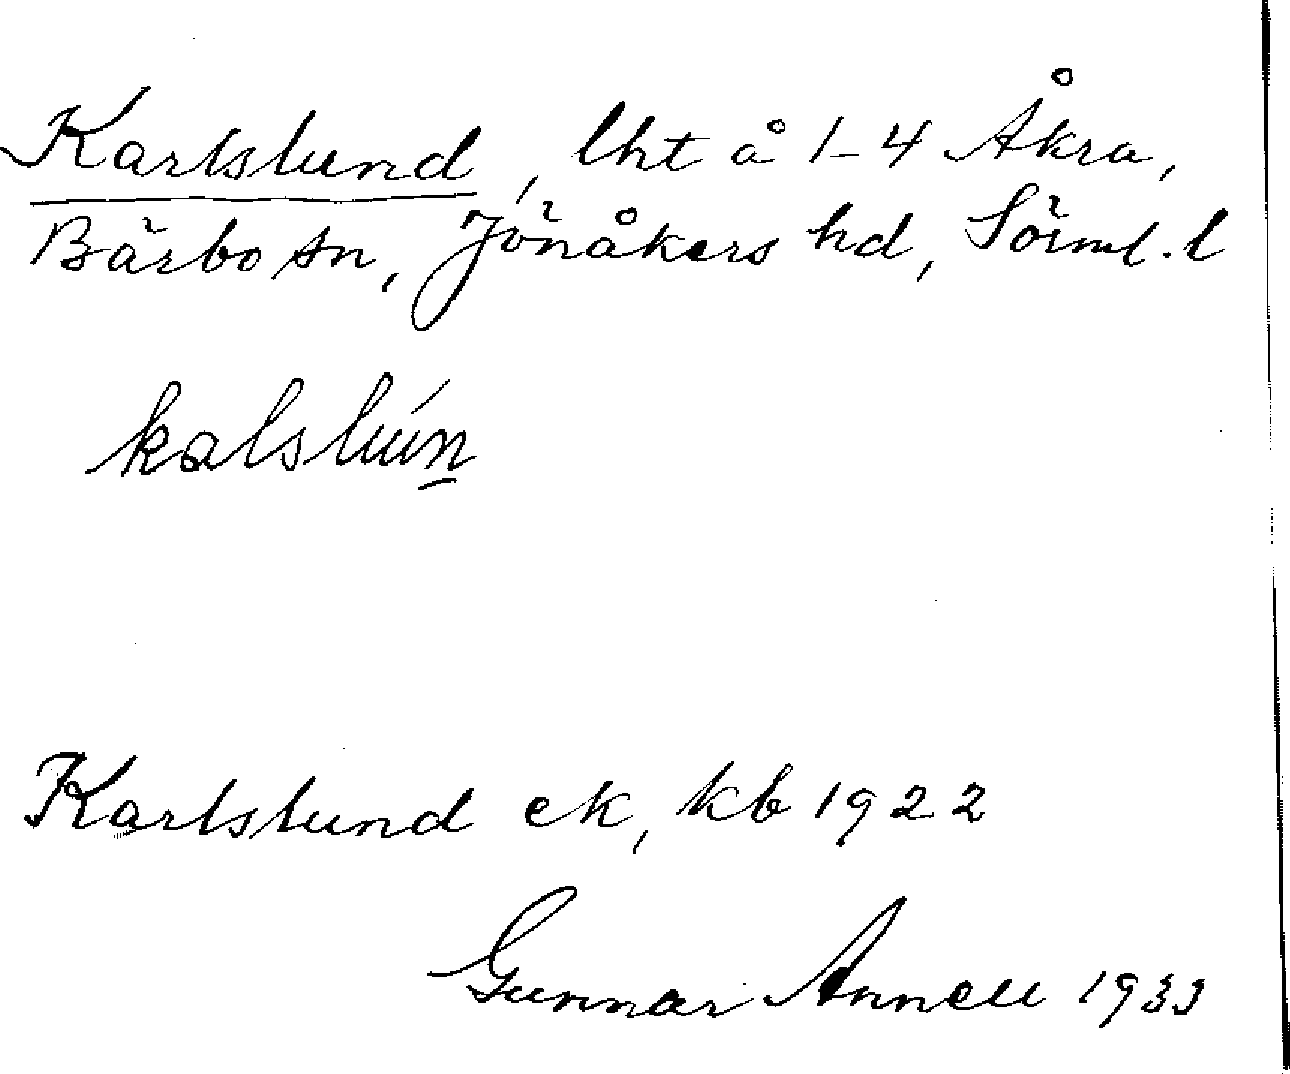 Karlslund, lht å 1-4 Åkra,
Bärbo sn, Jönåkers hd, Sörml. l
kalslún̲
Karlslund ek, kb 1922
Gunnar Annell 1933